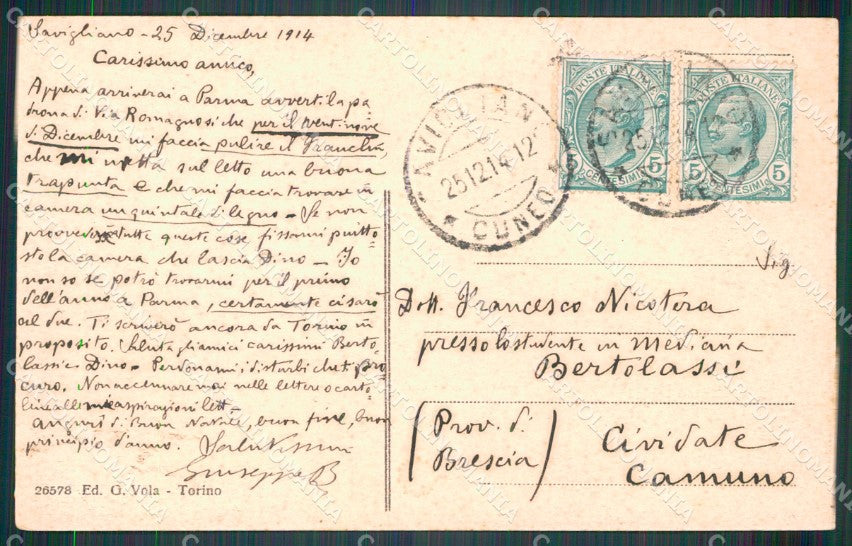 Savigliano - 25 Dicembre 1914
Carissimo amico,
Appena arriverai a Parma avverti la pa-
drona di Via Romagnosi che per il ventinove
di Dicembre mi faccia pulire il
che mi metta sul letto una buona
trapunta e che mi faccia trovare in
camera un quintale di legno - Se non
provvede tutte queste cose fissami piutto-
sto la camera che lascia Dino - Io
non so se potrò trovarmi per il primo
dell'anno a Parma, certamente ci sarò
al due. Ti scriverò ancora da Torino in
proposito. Saluta gli amici carissimi Berto-
lassi e Dino - Perdonami i disturbi che ti pro-
curo. Non accennare mai nelle lettere o carto-
line alle mie aspirazioni lett -
auguri di Buon Natale, buona fine, buon
principio d'anno. Salutissimi
Giuseppe B
26578 Ed. G. Vola - Torino
SAVIGLIANO
25.12.14.12
* CUNEO *
POSTE ITALIANE
5 CENTESIMI 5
POSTE ITALIANE
5 CENTESIMI 5
25.12.14.12
CUNEO
Sig
Dott. Francesco Nicotera
presso lo studente in medicina
Bertolassi
(Prov. di
Brescia)
Cividate
Camuno
CARTOLINOMANIA